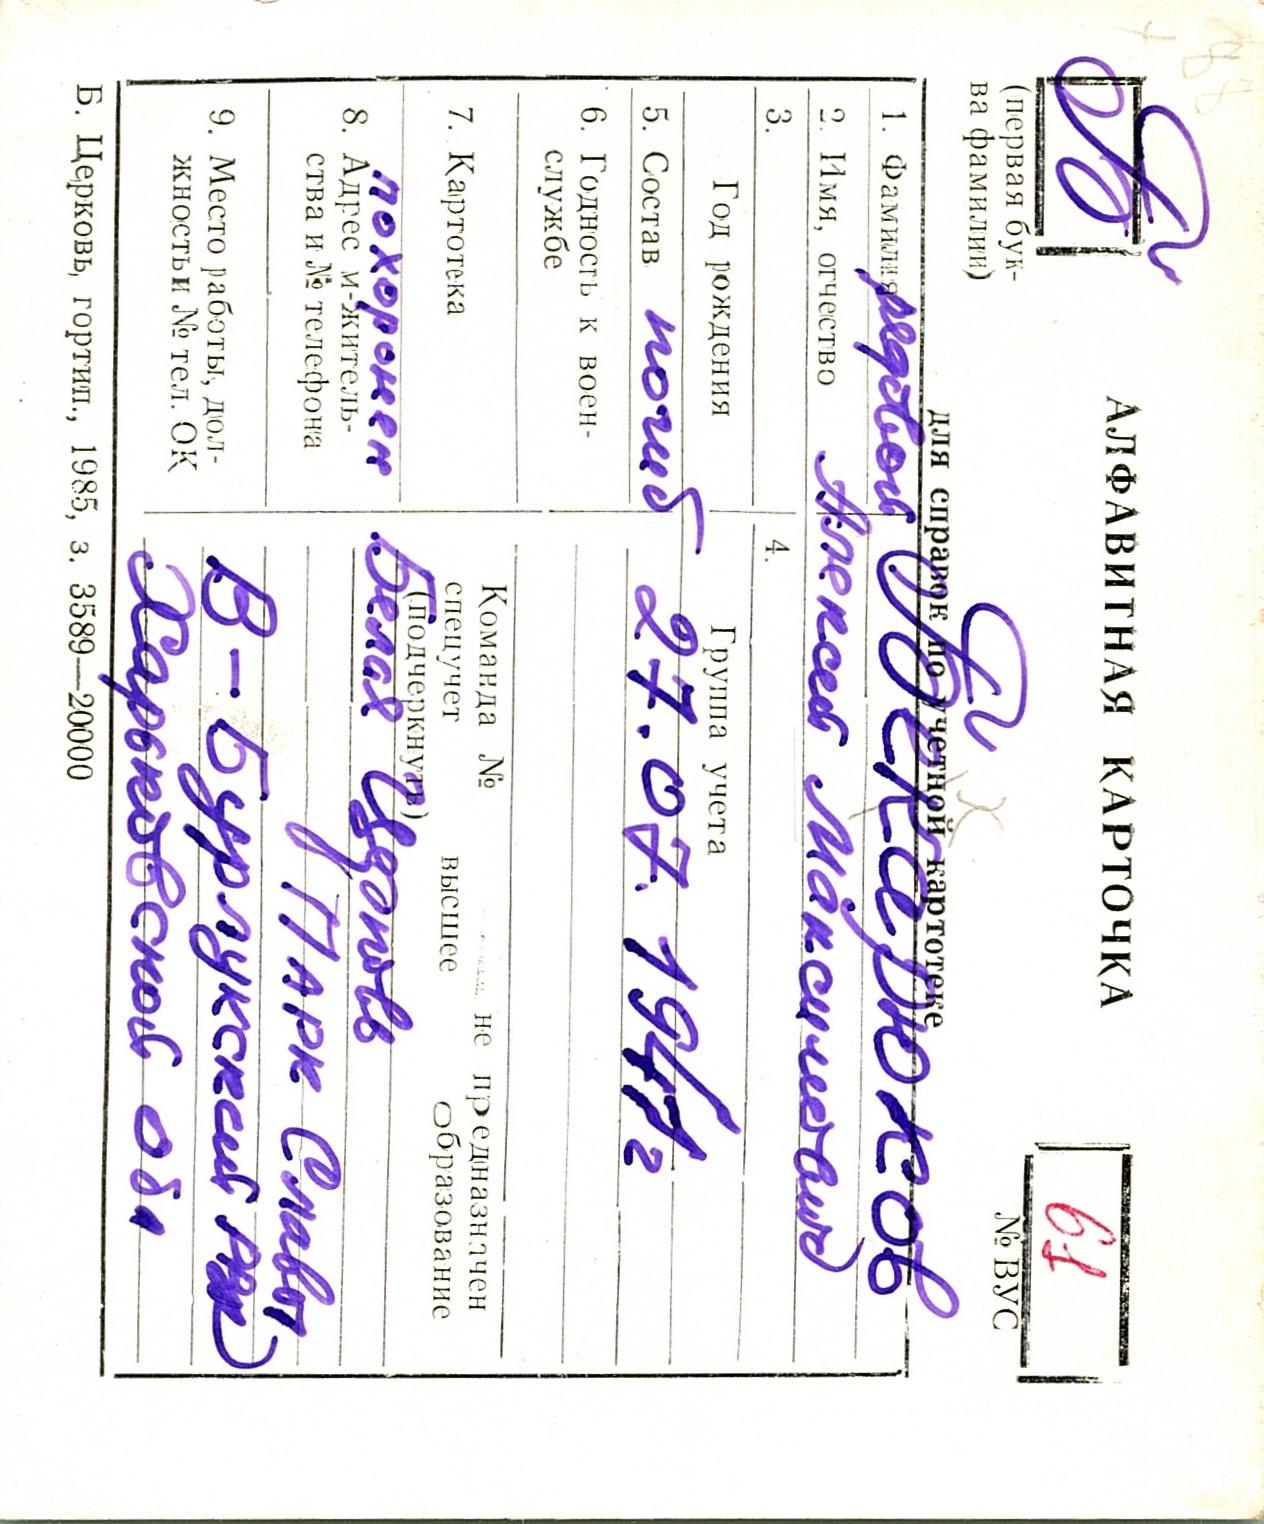 АЛФАВИТНАЯ КАРТОЧКА
(первая бук-
ва фамилии)
61
№ ВУС
для справок по учетной картотеке
1. Фамилия рядовой
2. Имя, отчество Алексей Максимович
3. 4.
Год рождения Группа учета
5. Состав погиб 27.07.
6. Годность к воен-
службе
7. Картотека
Команда № не предназначен
спецучет высшее образование
(подчеркнуть)
похоронен
8. Адрес м-житель-
ства и № телефона
Парк Славы
9. Место работы, дол-
жность и № тел. ОК
В-Бурлукский
Харьковской обл
Б. Церковь, гортип., 1985, з. 3589—20000